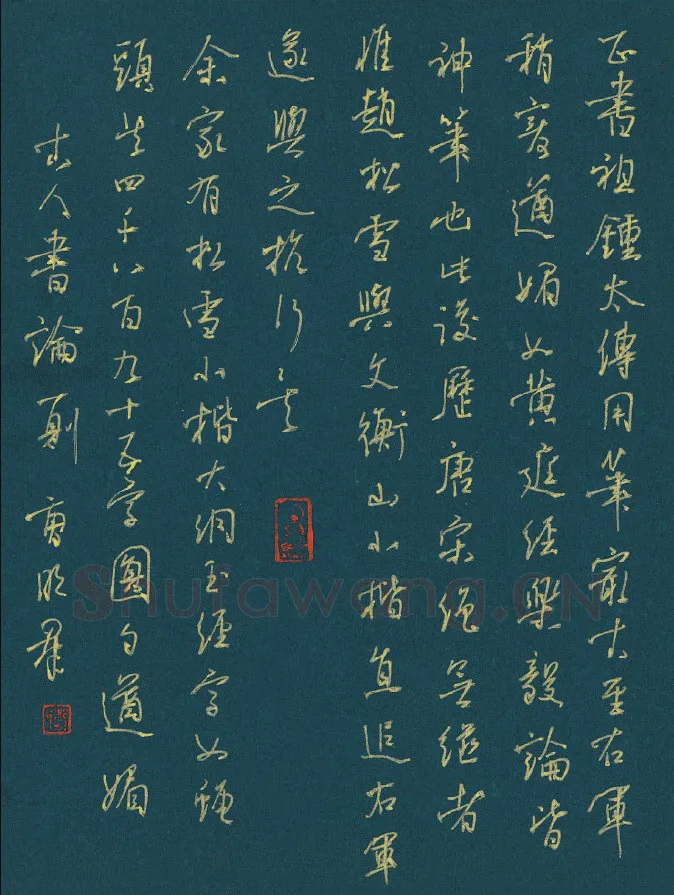 正書祖鍾太傅用筆最古至右軍
稍變遒媚如黄庭經樂毅論皆
神筆也此後歷唐宋絶無繼者
惟趙松雪與文衡山小楷直追右軍
遂與之抗行矣
余家有松雪小楷大洞玉經字如蠅
頭共四千八百九十五字圓勻遒媚
古人書論二則 曹明群
Shufawang.CN